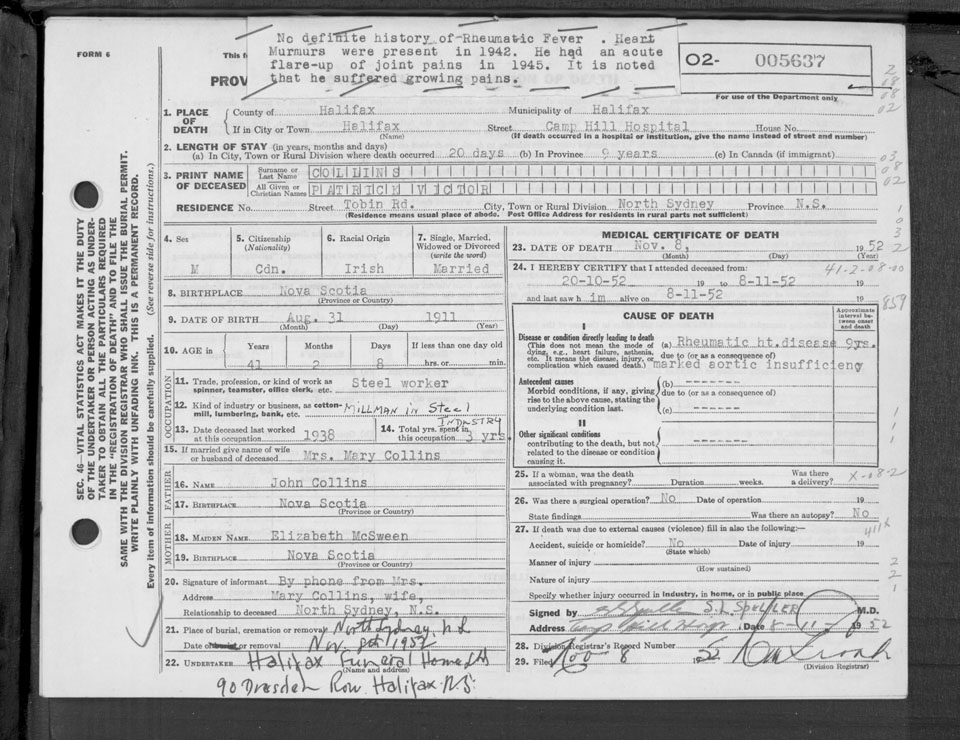 No definite history of Rheumatic Fever . Heart
Murmurs were present in 1942. He had an acute
flare-up of joint pains in 1945. It is noted
that he suffered growing pains.
FORM 6
This f
PROV
O2- 005637
For use of the Department only
2
08
08
02
SEC. 46—VITAL STATISTICS ACT MAKES IT THE DUTY
OF THE UNDERTAKER OR PERSON ACTING AS UNDER-
TAKER TO OBTAIN ALL THE PARTICULARS REQUIRED
IN THE "REGISTRATION OF DEATH" AND TO FILE THE
SAME WITH THE DIVISION REGISTRAR WHO SHALL ISSUE THE BURIAL PERMIT.
WRITE PLAINLY WITH UNFADING INK. THIS IS A PERMANENT RECORD.
Every item of information should be carefully supplied. (See reverse side for instructions.)
1. PLACE OF DEATH County of Halifax Municipality of Halifax
If in City or Town Halifax Street Camp Hill Hospital House No.
(Name) (If death occurred in a hospital or institution, give the name instead of street and number)
2. LENGTH OF STAY (in years, months and days)
(a) In City, Town or Rural Division where death occurred 20 days (b) In Province 9 years (c) In Canada (if immigrant)
03
08
02
3. PRINT NAME OF DECEASED Surname or Last Name COLLINS
All Given or Christian Names PATRICK VICTOR
RESIDENCE No. Street Tobin Rd. City, Town or Rural Division North Sydney Province N.S.
(Residence means usual place of abode. Post Office Address for residents in rural parts not sufficient)
1
0
3
2
4. Sex M
5. Citizenship (Nationality) Cdn.
6. Racial Origin Irish
7. Single, Married, Widowed or Divorced (write the word) Married
8. BIRTHPLACE Nova Scotia
(Province or Country)
9. DATE OF BIRTH Aug. 31 1911
(Month) (Day) (Year)
10. AGE in Years Months Days If less than one day old
41 2 8 hrs. or min.
OCCUPATION
11. Trade, profession, or kind of work as spinner, teamster, office clerk, etc. Steel worker
12. Kind of industry or business, as cotton-mill, lumbering, bank, etc. MILLMAN IN STEEL INDUSTRY
13. Date deceased last worked at this occupation 1938
14. Total yrs. spent in this occupation 3 yrs.
15. If married give name of wife or husband of deceased Mrs. Mary Collins
FATHER
16. NAME John Collins
17. BIRTHPLACE Nova Scotia
(Province or Country)
MOTHER
18. MAIDEN NAME Elizabeth McSween
19. BIRTHPLACE Nova Scotia
(Province or Country)
20. Signature of informant By phone from Mrs.
Address Mary Collins, wife,
Relationship to deceased North Sydney, N.S.
21. Place of burial, cremation or removal North Sydney, N.S
Date of burial or removal Nov. 1952
22. UNDERTAKER Halifax Funeral Home Ltd
(Name and address)
90 Dresden Row Halifax N.S.
MEDICAL CERTIFICATE OF DEATH
23. DATE OF DEATH Nov. 8, 1952
(Month) (Day) (Year)
24. I HEREBY CERTIFY that I attended deceased from: 41-2-08-00
20-10-52 19 to 8-11-52 19
and last saw h im alive on 8-11-52 19
859
CAUSE OF DEATH
Approximate interval between onset and death
I
Disease or condition directly leading to death
(This does not mean the mode of dying, e.g., heart failure, asthenia, etc. It means the disease, injury, or complication which caused death.)
(a) Rheumatic ht.disease 9yrs.
due to (or as a consequence of)
marked aortic insufficiency
Antecedent causes
Morbid conditions, if any, giving rise to the above cause, stating the underlying condition last.
(b) -------
due to (or as a consequence of)
(c) -------
II
Other significant conditions
contributing to the death, but not related to the disease or condition causing it.
-------
1
25. If a woman, was the death associated with pregnancy? Duration weeks. Was there a delivery?
X-08-2
26. Was there a surgical operation? No Date of operation 19
State findings Was there an autopsy? No
27. If death was due to external causes (violence) fill in also the following:—
Accident, suicide or homicide? No Date of injury 19
(State which)
Manner of injury
(How sustained)
Nature of injury
Specify whether injury occurred in industry, in home, or in public place
2
2
1
Signed by S. L. SPULLER M.D.
Address Camp Hill Hosp Date 8-11- 1952
28. Division Registrar's Record Number
29. Filed Nov 8 52
(Division Registrar)